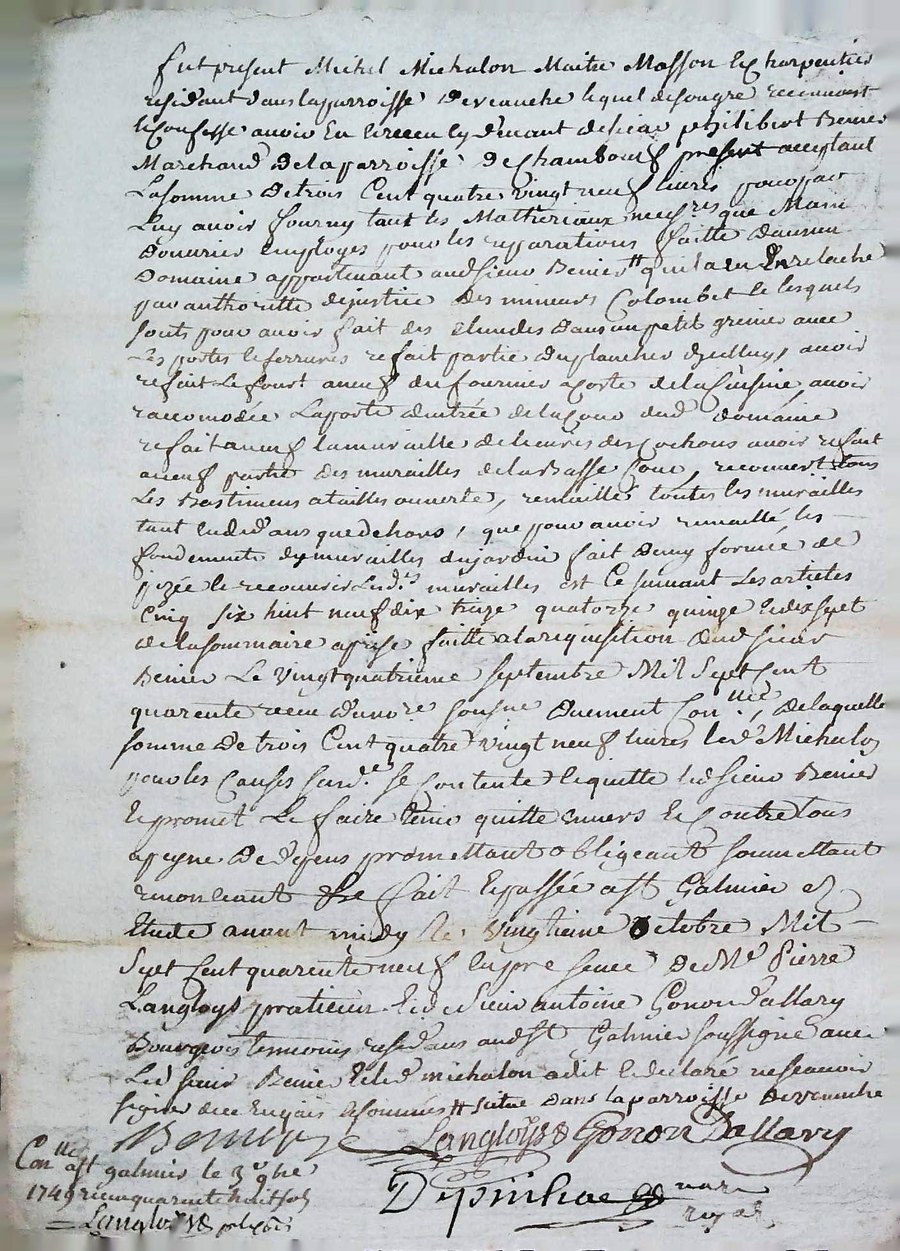 fut present Michel Michalon Maitre Masson & charpentier
residant dans la parroisse de veauche lequel de son gre reconnoist
& confesse avoir eu & receu cy devant de sieur philibert Benier
Marchand de la parroisse de Chambeuf present acceptant
La somme de trois Cent quatre vingt neuf livres pour par
Luy avoir fourny tant les Matheriaux que Main
Douvrier employes pour les reparations faitte dans un
Domaine appartenant aud sieur Benier # quil a eu En relaché
par authoritte de justice des mineurs Colombet & lesquels
sont pour avoir fait des dans un petit grenier avec
Les portes & ferrures refait partie du plancher dicelluy, avoir
refait Le fourt a neuf du fournier a coste de la Cuisine, avoir
raccomodée La porte dentrée de la Cour dud domaine
refait a neuf la muraille de des Cochons avoir refait
a neuf partie des murailles de la Basse Cour, recouvert tous
Les Bastimens a tailles ouverte, remaillé toutes les murailles
tant en dedans que dehors, que pour avoir remaillé les
fondements des murailles du jardin fait de
pizée & recouvrir Lesd.s murailles est Ce suivant Les articles
Cinq six huit neuf dix traize quatorze quinze & dix sept
de la sommaire aprise faitte a la requisition dud sieur
Benier Le vingt quatrieme septembre Mil Sept Cent
quarente receu du no.re sousne duement Con.llée, de laquelle
somme de trois Cent quatre vingt neuf livres led. Michalon
pour les Causes susd.e se Contente & quitte led sieur Benier
& promet Le faire tenir quitte envers & Contre tous
a peyne de depens promettant obligeant soumettant
renonceant fait & passée a st Galmier
Etude avant midy le vingtieme octobre Mil
Sept Cent quarente neuf en presence de Me Pierre
Langloys praticien & de sieur antoine Gonon dallary
Bourgeois temoins residans aud st Galmier soussigné avec
Led sieur Benier & led michalon a dit & declaré ne scavoir
signer de ce Enquis & sommés # scitué dans la parroisse de veauche
Benier Langloys Gonon Dallary
Con.llé a st galmier le 3e 9bre
1749 receu quarente huit sols
Langlois
Depinhac no.re
royal